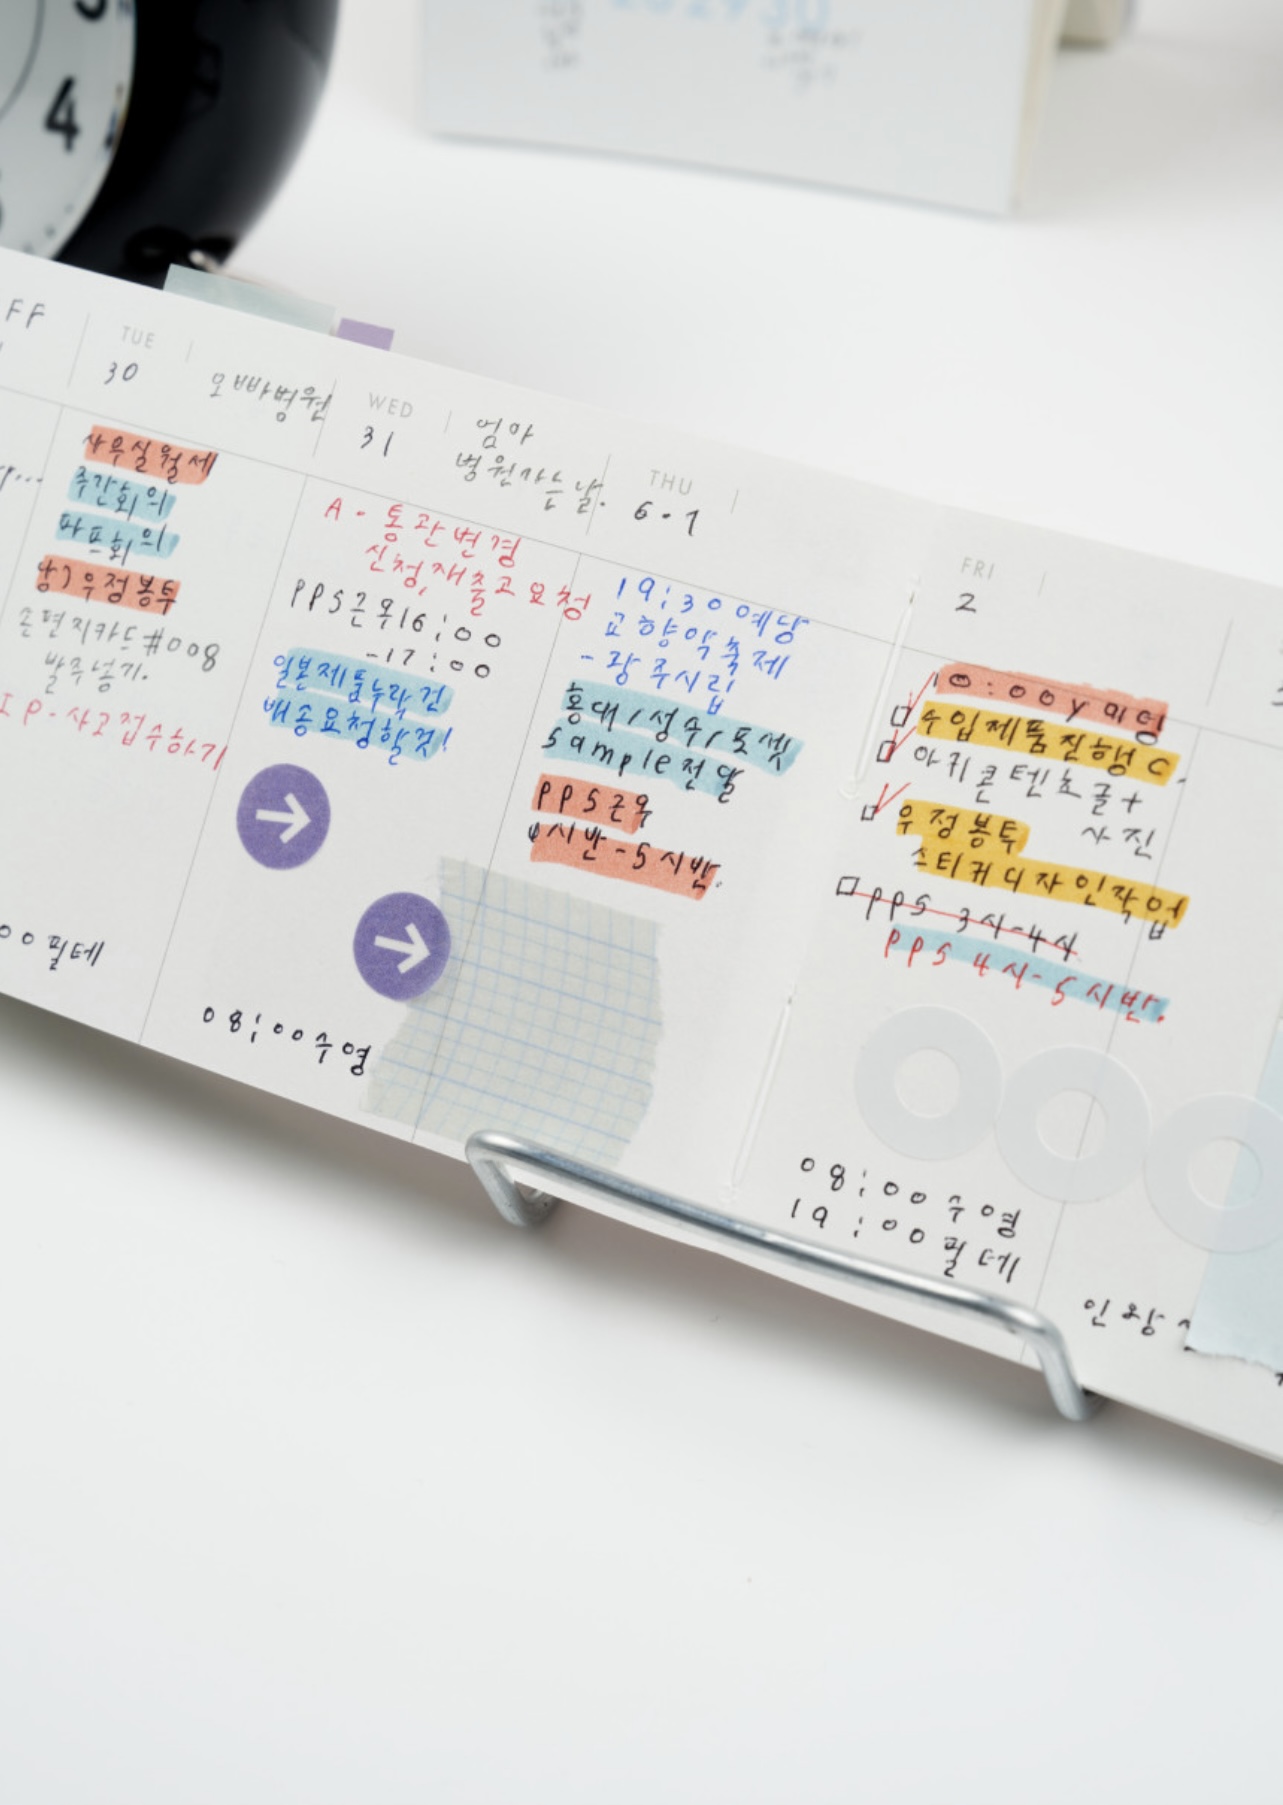 4
FF
TUE
30
오빠병원
사무실월세
주간회의
파프회의
상)우정봉투
손편지카드#008
발주넣기.
IP-사고접수하기
00필테
WED
31
엄마
병원가는날.
A-통관변경
신청,재출고요청
PPS근무16:00
-17:00
일본제품누락건
배송요청할것!
08:00수영
THU
6.1
19:30예당
교향악축제
-광주시립
홍대/성수/도셋
sample전달
PPS근무
4시반-5시반.
FRI
2
10:00y미팅
수입제품진행C.
아키콘텐츠글+
사진
우정봉투
스티커디자인작업
PPS 3시-4시
PPS 4시-5시반.
08:00수영
19:00필테
인왕